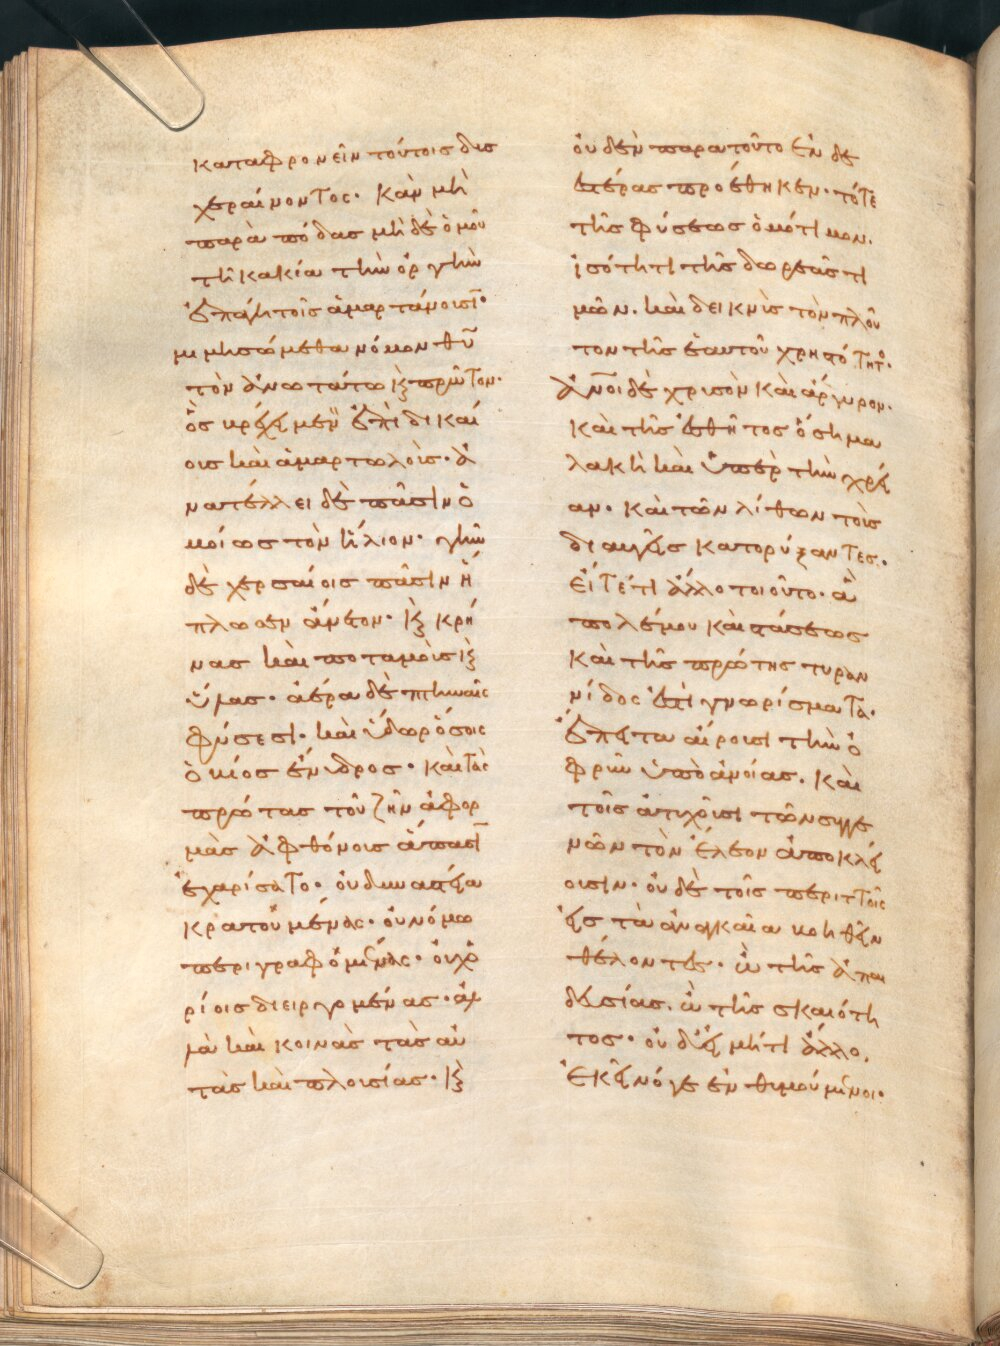 καταφρονεῖν τούτοις δυσ
χεραίνοντος· κἂν μὴ
παρὰ πόδας μὴ δὲ ὁμοῦ
τῆ κακία τὴν ὀργὴν
ἐπάγη τοῖς ἁμαρτάνουσι·
μιμησώμεθα νόμον θυ
τὸν ἀνωτάτω κ πρῶτον·
ὃς βρέχει μὲν ἐπὶ δικαί
οις καὶ ἁμαρτωλοὺς· ἀ
νατέλλει δὲ πᾶσιν ὁ
μοίως τὸν ἥλιον· γῆν
δὲ χερσαίοις πᾶσιν ἥ
πλωσεν ἄνετον· κ κρή
νας καὶ ποταμοὺς κ
ὕλας· ἀέρα δὲ πτηναῖς
φύσεσι· καὶ ὕδωρ ὅσοις
ὁ βίος ἔνυδρος· καὶ τὰς
πρώτας τοῦ ζῆν ἀφορ
μὰς ἀφθόνοις ἅπασι
ἐχαρίσατο· οὐ δυναστεία
κρατουμένας· οὐ νόμω
περιγραφομένας· οὐχ ὁ
ρίοις διειργομένας· ἀλ
λὰ καὶ κοινὰς τὰς αὐ
τὰς καὶ πλουσίας· κ
οὐδὲν παρα τοῦτο ἐνδε
εστέρας προέθηκεν· τό τε
τῆς φύσεως ὁμότιμον.
ἰσότητι τῆς δωρεᾶς τι
μῶν. καὶ δεικνὺς τὸν πλοῦ
τον τῆς ἑαυτοῦ χρηστότητο·
ἀνοι δὲ χρυσὸν καὶ ἄργυρον·
καὶ τῆς ἐσθῆτος ὅση μα
λακὴ καὶ ὑπὲρ τὴν χρεί
αν. καὶ τῶν λίθων τοὺς
διαυγεῖς κατορύξαντες·
εἴ τέ τι ἄλλο τοιοῦτο· ἃ
πολέμου καὶ στάσεως
καὶ τῆς πρώτης τυραν
νίδος ἐστὶ γνωρίσματα·
ἔπειτα αἴρουσι τὴν ὀ
φρῦν ὑπὸ ἀνοίας. καὶ
τοῖς ἀτυχοῦσι τῶν συγγε
νῶν τὸν ἔλεον ἀποκλεί
ουσιν· οὐ δὲ τοῖς περιττοῖς
εἰς τὰ ἀναγκαῖα βοηθεῖν
θέλοντες· ὢ τῆς ἀπαι
δευσίας. ὢ τῆς σκαιότη
τος· οὐ δ' εἰ μή τι ἄλλο,
ἐκεῖνό γε ἐνθυμούμενοι·